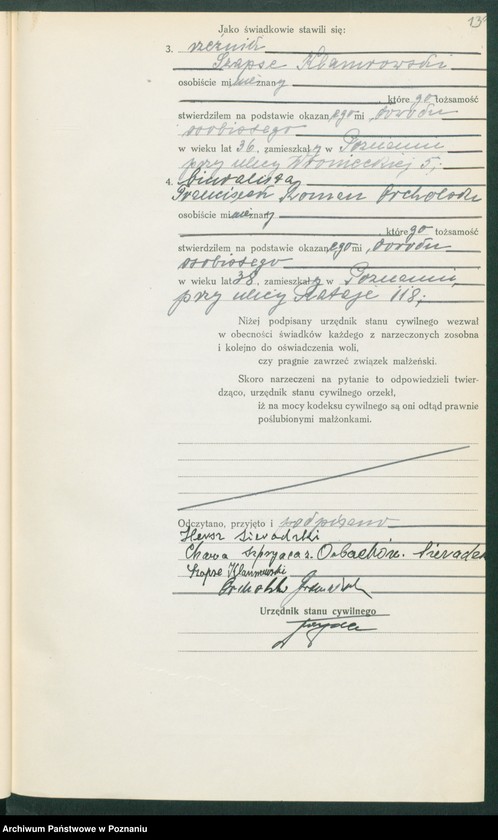 13
Jako świadkowie stawili się:
3. rzeźnik
Szapse Klamrowski
osobiście mi nieznany
, które go tożsamość
stwierdziłem na podstawie okazanego mi dowodu
osobistego
w wieku lat 36, zamieszkały w Poznaniu
przy ulicy Wronieckiej 5;
4. biuralista
Franciszek Roman
osobiście mi nieznany
, które go tożsamość
stwierdziłem na podstawie okazanego mi dowodu
osobistego
w wieku lat 38, zamieszkały w Poznaniu,
przy ulicy Rataje 118;
Niżej podpisany urzędnik stanu cywilnego wezwał
w obecności świadków każdego z narzeczonych zosobna
i kolejno do oświadczenia woli,
czy pragnie zawrzeć związek małżeński.
Skoro narzeczeni na pytanie to odpowiedzieli twier-
dząco, urzędnik stanu cywilnego orzekł,
iż na mocy kodeksu cywilnego są oni odtąd prawnie
poślubionymi małżonkami.
Odczytano, przyjęto i podpisano
Hersz Sieradzki
Chawa
Szapse Klamrowski
Urzędnik stanu cywilnego
Archiwum Państwowe w Poznaniu